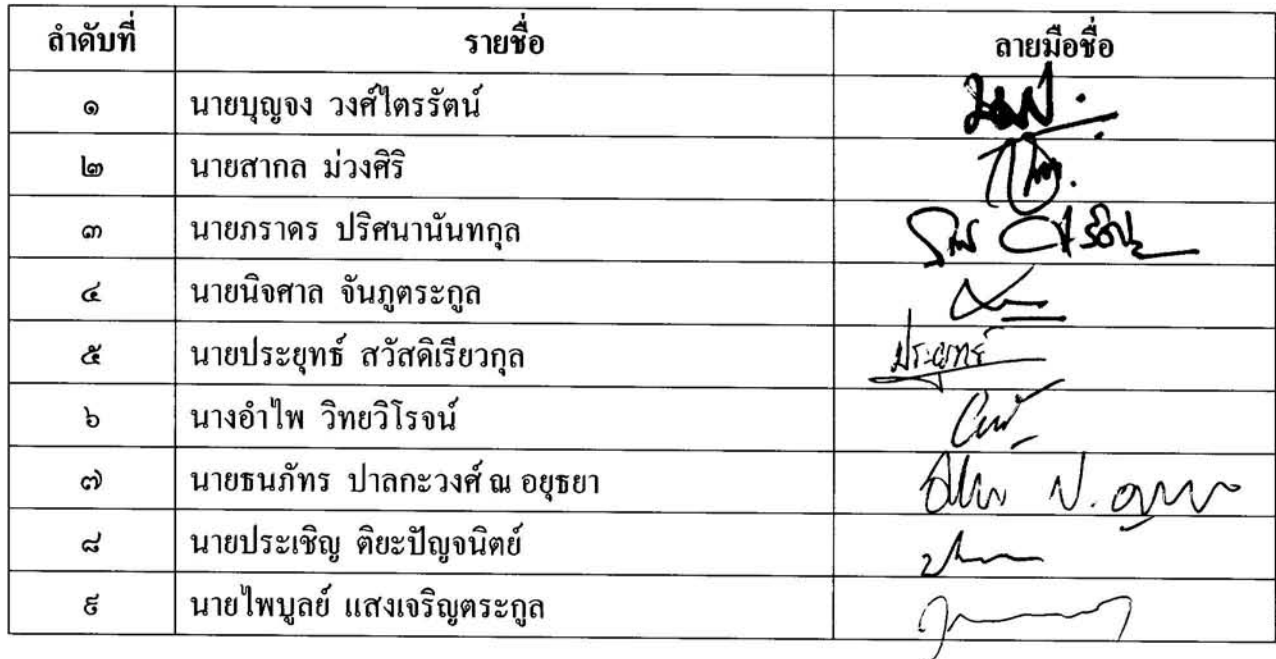 ลำดับที่ รายชื่อ ลายมือชื่อ
๑ นายบุญจง วงศ์ไตรรัตน์
๒ นายสากล ม่วงศิริ
๓ นายภราดร ปริศนานันทกุล
๔ นายนิจศาล จันภูตระกูล
๕ นายประยุทธ์ สวัสดิเรียวกุล ประยุทธ์
๖ นางอำไพ วิทยวิโรจน์
๗ นายธนภัทร ปาลกะวงศ์ ณ อยุธยา
๘ นายประเชิญ ติยะปัญจนิตย์
๙ นายไพบูลย์ แสงเจริญตระกูล